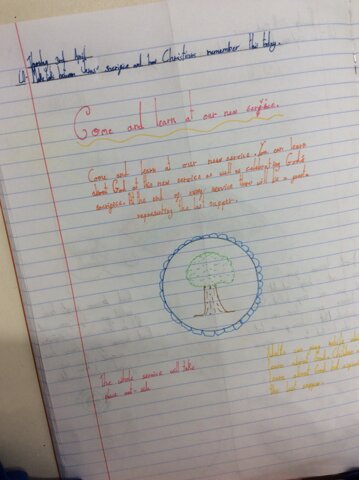 LI: Make link between Jesus' sacrifice and how Christians remember this today.
Come and learn at our new service.
Come and learn at our new service. You can learn
about God at this new service as well as celebrating God's
sacrifice. At the end of every service there will be a
representing the last supper.
The whole service will take
place out-side
learn about God. Children
learn about God
the last supper.